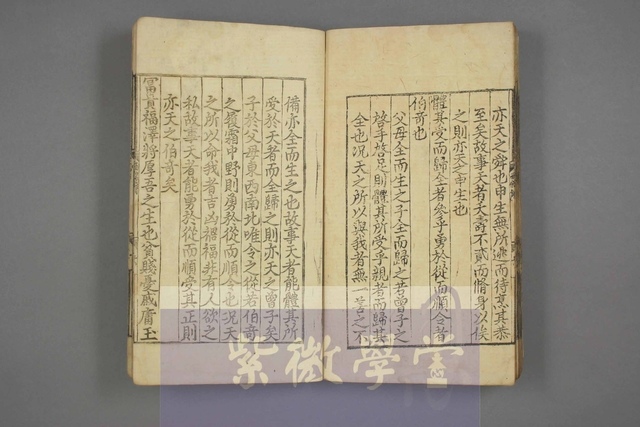 亦天之舜也申生無所逃而待烹其恭
至矣故事天者夭壽不貳而脩身以俟
之則亦天之申生也
體其受而歸全者參乎勇於從而順令者
伯奇也
父母全而生之子全而歸之若曾子之
啓手啓足則體其所受乎親者而歸其
全也况天之所以與我者無一善之不
備亦全而生之也故事天者能體其所
受於天者而全歸之則亦天之曾子矣
子於父母東西南北唯令之從若伯奇
之履霜中野則勇於從而順令也况天
之所以命我者吉凶禍福非有人欲之
私故事天者能勇於從而順受其正則
亦天之伯奇矣
富貴福澤將厚吾之生也貧賤憂戚庸玉
紫微學堂